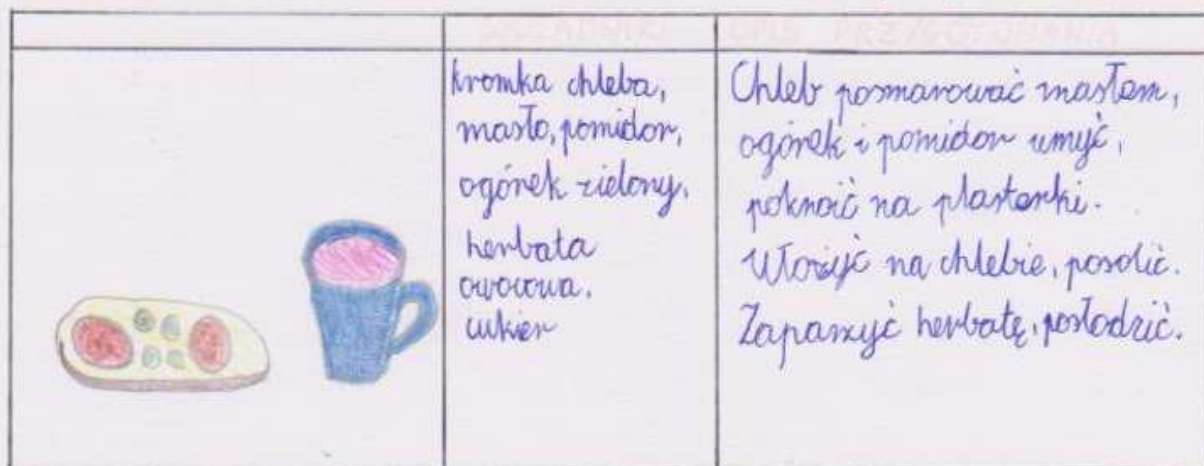 SKŁADNIKI
OPIS PRZYGOTOWANIA
kromka chleba,
masło, pomidor,
ogórek zielony,
herbata
owocowa,
cukier
Chleb posmarować masłem,
ogórek i pomidor umyć,
pokroić na plasterki.
Ułożyć na chlebie, posolić.
Zaparzyć herbatę, posłodzić.